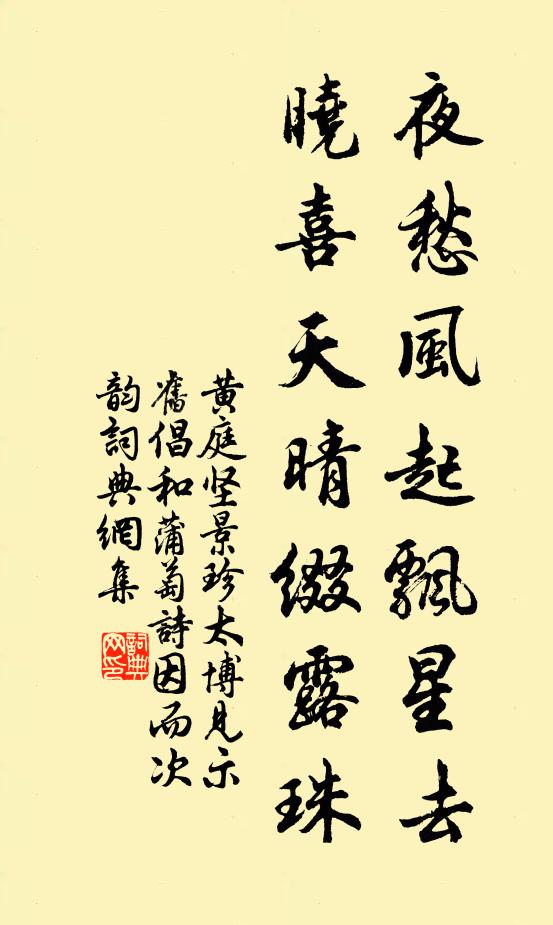 夜愁風起飄星去
曉喜天晴綴露珠
黄庭坚景珍太博見示
舊倡和蒲萄詩因而次
韵詞典網集
詞典
网印